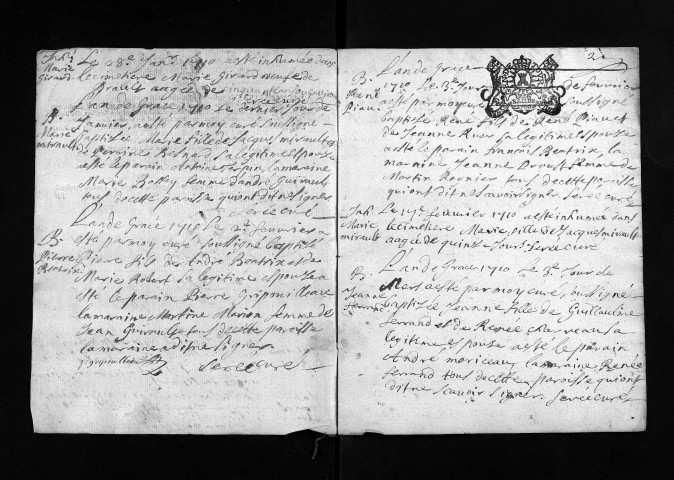 Inh.
Marie
Girard
Le 28e Janr. 1710 a esté inhumée dans
le cimetiere Marie Girard veufe de
aagée de cinquante
Serre curé
B.
Marie
mirault
L'an de Grace 1710 le dernier Jour de
Janvier, a esté par moy curé soussigné
baptisée Marie fille de Jacques mirault et
de Perrine Besnard sa legitime espouse
a esté le parain Antoine la maraine
Marie femme d'andré Guirault
tous de cette paroisse qui ont dit ne signer
Serre curé
B.
Pierre
Beatrix
L'an de Grace 1710 Le 2e feuvrier a
esté par moy curé soussigné baptisé
Pierre fils de André Beatrix et de
Marie Robert sa legitime espouse a
esté le parain Pierre Gripouilleau
la maraine Martine Marion femme de
Jean Guirault tous de cette paroisse
la maraine a dit ne signer
P gripouilleau
Serre curé
2
B.
René
Piau
L'an de Grace
1710 Le 13e Jour de feuvrier
a esté par moy curé soussigné
baptisé René fils de René Piau et
de Jeanne sa legitime espouse
a esté le parain françois Beatrix la
maraine Jeanne Proust femme de
Martin Regnier tous de cette paroisse
qui ont dit ne scavoir signer Serre curé
Inh.
Marie
mirault
Le 17e feuvrier 1710 a esté inhumée dans
le cimetiere Marie fille de Jacques mirault
aagée de quinze Jours. Serre curé
B.
Jeanne
ferrand
L'an de Grace 1710 le 3e Jour de
Mars a esté par moy curé soussigné
baptisée Jeanne fille de Guillaulme
ferrand et de Renée Charveau sa
legitime espouse a esté le parain
André moriceau la maraine Renée
ferrand tous de cette paroisse qui ont
dit ne scavoir signer. Serre curé